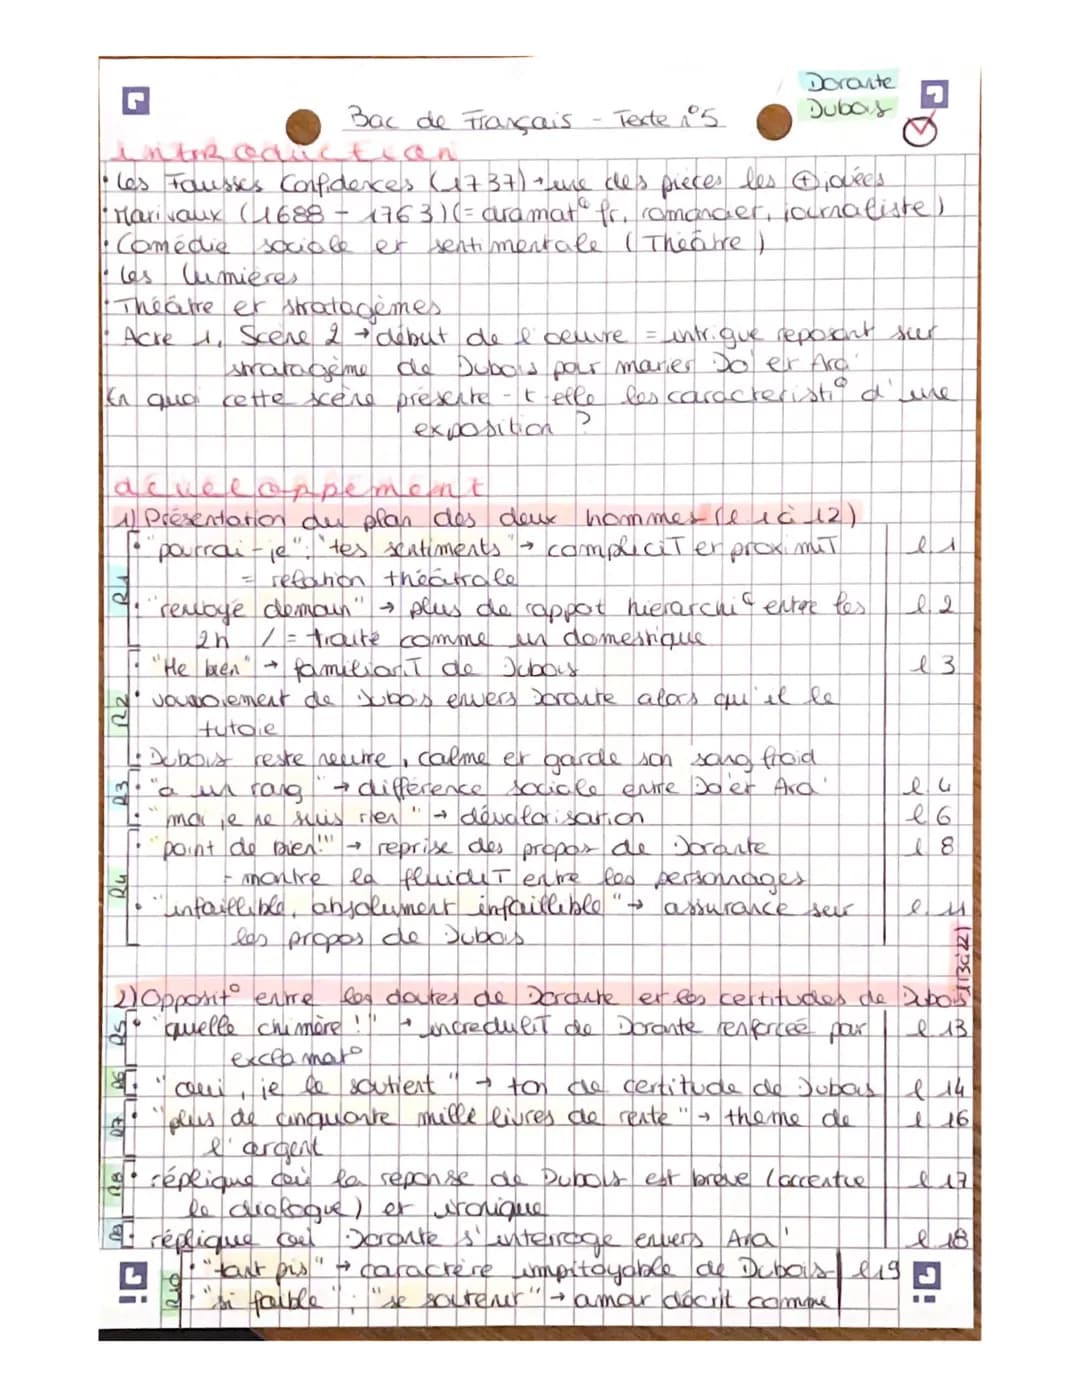 Dorante
Dubois
Bac de Français - Texte n°5
introduction
• Les Fausses Confidences (1737) → une des pièces les ⊕ jouées
• Marivaux (1688 - 1763) (= dramat° fr, romancier, journaliste)
• Comédie sociale et sentimentale (Théâtre)
• Les Lumières
• Théâtre et stratagèmes
• Acte 1, Scène 2 → début de l'oeuvre = intrigue reposant sur
stratagème de Dubois pour marier Do' et Ara'
En quoi cette scène présente-t-elle les caractéristi° d'une
exposition ?
développement
1) Présentation du plan des deux hommes (l 1 à 12)
R1 • "pourrai-je"; "tes sentiments" → compliciT et proximiT l 1
= relation théâtrale
• "renvoyé demain" → plus de rappot hierarchi° entre les l 2
2h / = traité comme un domestique
R2 • "He bien" → familiariT de Dubois l 3
• vouvoiement de Dubois envers Dorante alors qu'il le
tutoie
• Dubois reste neutre, calme et garde son sang froid
R3 • "a un rang" → différence sociale entre Do' et Ara' l 4
• "moi je ne suis rien" → dévalorisation l 6
R4 • "point de bien!!!" → reprise des propos de Dorante l 8
- montre la fluidiT entre les personnages
• "infaillible, absolument infaillible" → assurance sur l 11
les propos de Dubois
2) Opposit° entre les doutes de Dorante et les certitudes de Dubois (13 à 22)
R5 • "quelle chimère !" → increduliT de Dorante renforcée par l 13
exclamat°
R6 • "oui, je le soutient" → ton de certitude de Dubois l 14
R7 • "plus de cinquante mille livres de rente" → theme de l 16
l'argent
R8 • réplique où la réponse de Dubois est brève (accentue l 17
le dialogue) et ironique
R9 • réplique où Dorante s'interroge envers Ara' l 18
R10 • "tant pis" → caractère impitoyable de Dubois l 19
• "si faible"; "se soutenir" → amour décrit comme